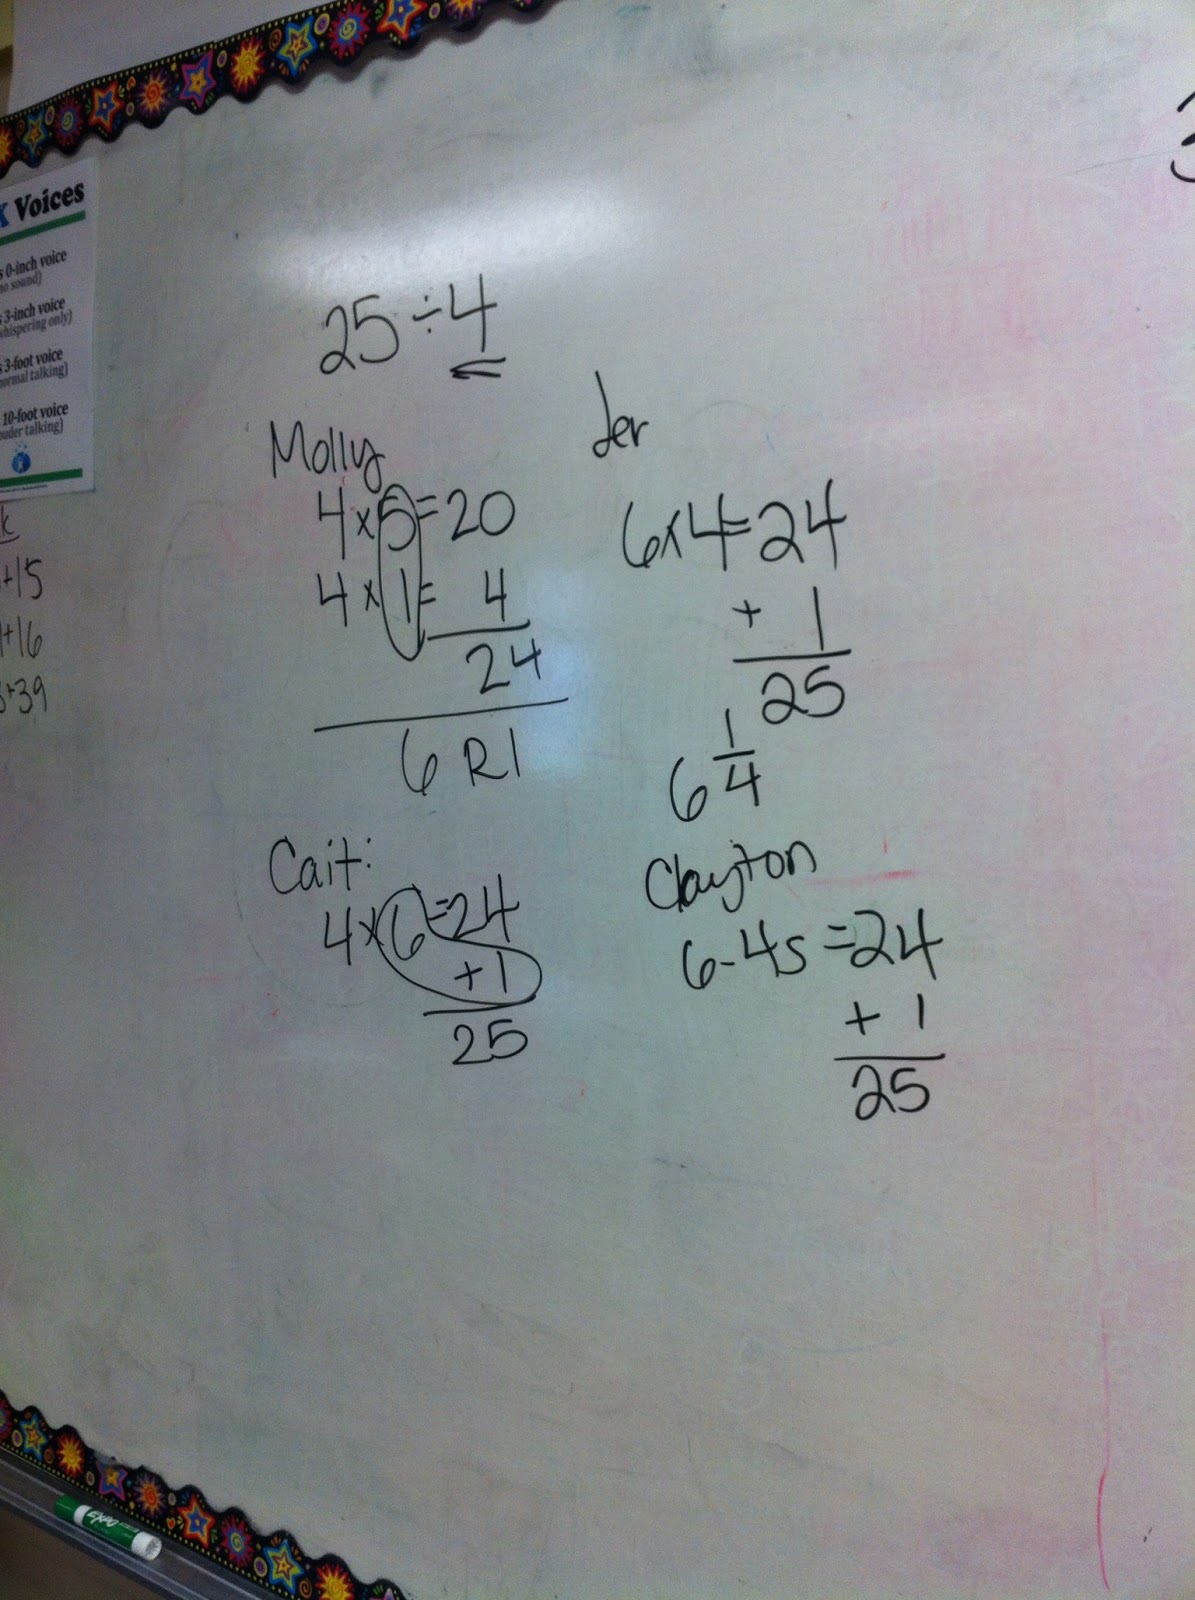 Voices
0-inch voice
3-inch voice
whispering only)
3-foot voice
normal talking)
10-foot voice
louder talking)
+15
+16
+39
25 ÷ 4
Molly
4 × 5 = 20
4 × 1 = 4
24
6 R1
Jer
6 × 4 = 24
+ 1
25
6 1/4
Cait:
4 × 6 = 24
+ 1
25
Clayton
6 - 4s = 24
+ 1
25
EXPO